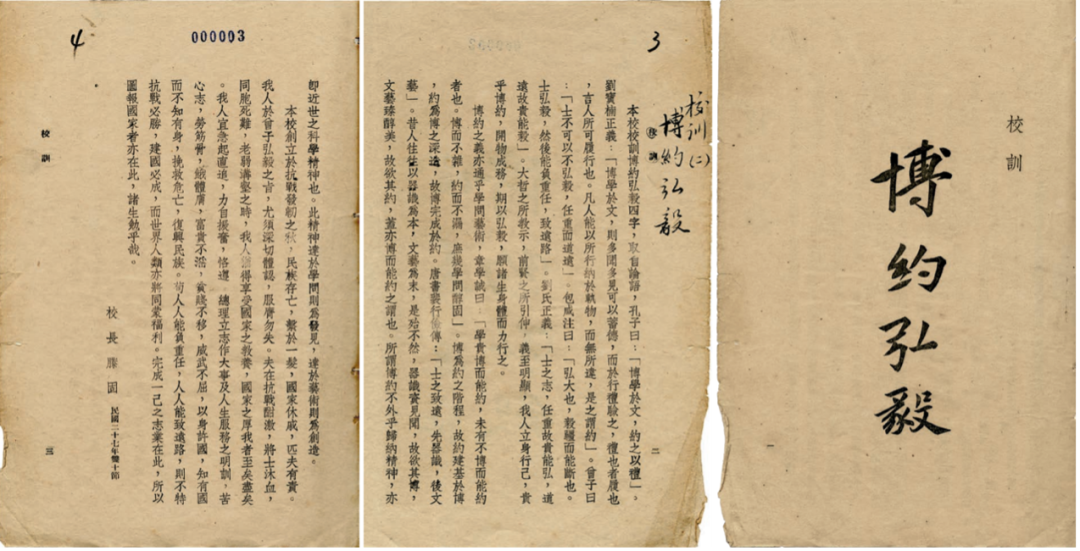 校訓
博約弘毅
3
校訓(二)
博約弘毅
校訓
本校校訓博約弘毅四字,取自論語,孔子曰:「博學於文,約之以禮」。
劉寶楠正義:「博學於文,則多聞多見可以蓄德,而於行禮驗之,禮也者履也
,言人所可履行也。凡人能以所行納於軌物,而無所違,是之謂約」。曾子曰
:「士不可以不弘毅,任重而道遠」。包咸注曰:「弘大也,毅彊而能斷也。
士弘毅,然後能負重任,致遠路」。劉氏正義:「士之志,任重故貴能弘,道
遠故貴能毅」。大哲之所教示,前賢之所引伸,義至明顯,我人立身行己,貴
乎博約,開物成務,期以弘毅,願諸生身體而力行之。
博約之義亦通乎學問藝術,章學誠曰:「學貴博而能約,未有不博而能約
者也。博而不雜,約而不漏,庶幾學問醇固」。博為約之階程,故約建基於博
,約為博之深造,故博完成於約。唐書裴行儉傳:「士之致遠,先器識,後文
藝」。昔人往往以器識為本,文藝為末,是殆不然,器識資見聞,故欲其博,
文藝臻醇美,故欲其約,蓋亦博而能約之謂也。所謂博約不外乎歸納精神,亦
二
4
000003
即近世之科學精神也。此精神達於學問則為發見,達於藝術則為創造。
本校創立於抗戰發軔之秋,民族存亡,繫於一髮,國家休戚,匹夫有責。
我人於曾子弘毅之旨,尤須深切體認,服膺勿失。夫在抗戰酣激,將士沐血,
同胞死難,老弱溝壑之時,我人猶得享受國家之教養,國家之厚我者至矣盡矣
。我人宜急起直追,力自振奮,恪遵 總理立志作大事及人生服務之明訓,苦
心志,勞筋骨,餓體膚,富貴不淫,貧賤不移,威武不屈,以身許國,知有國
而不知有身,挽救危亡,復興民族。苟人人能負重任,人人能致遠路,則不特
抗戰必勝,建國必成,而世界人類亦將同蒙福利。完成一己之志業在此,所以
圖報國家者亦在此,諸生勉乎哉。
校長 滕固 民國二十七年雙十節
校訓
三